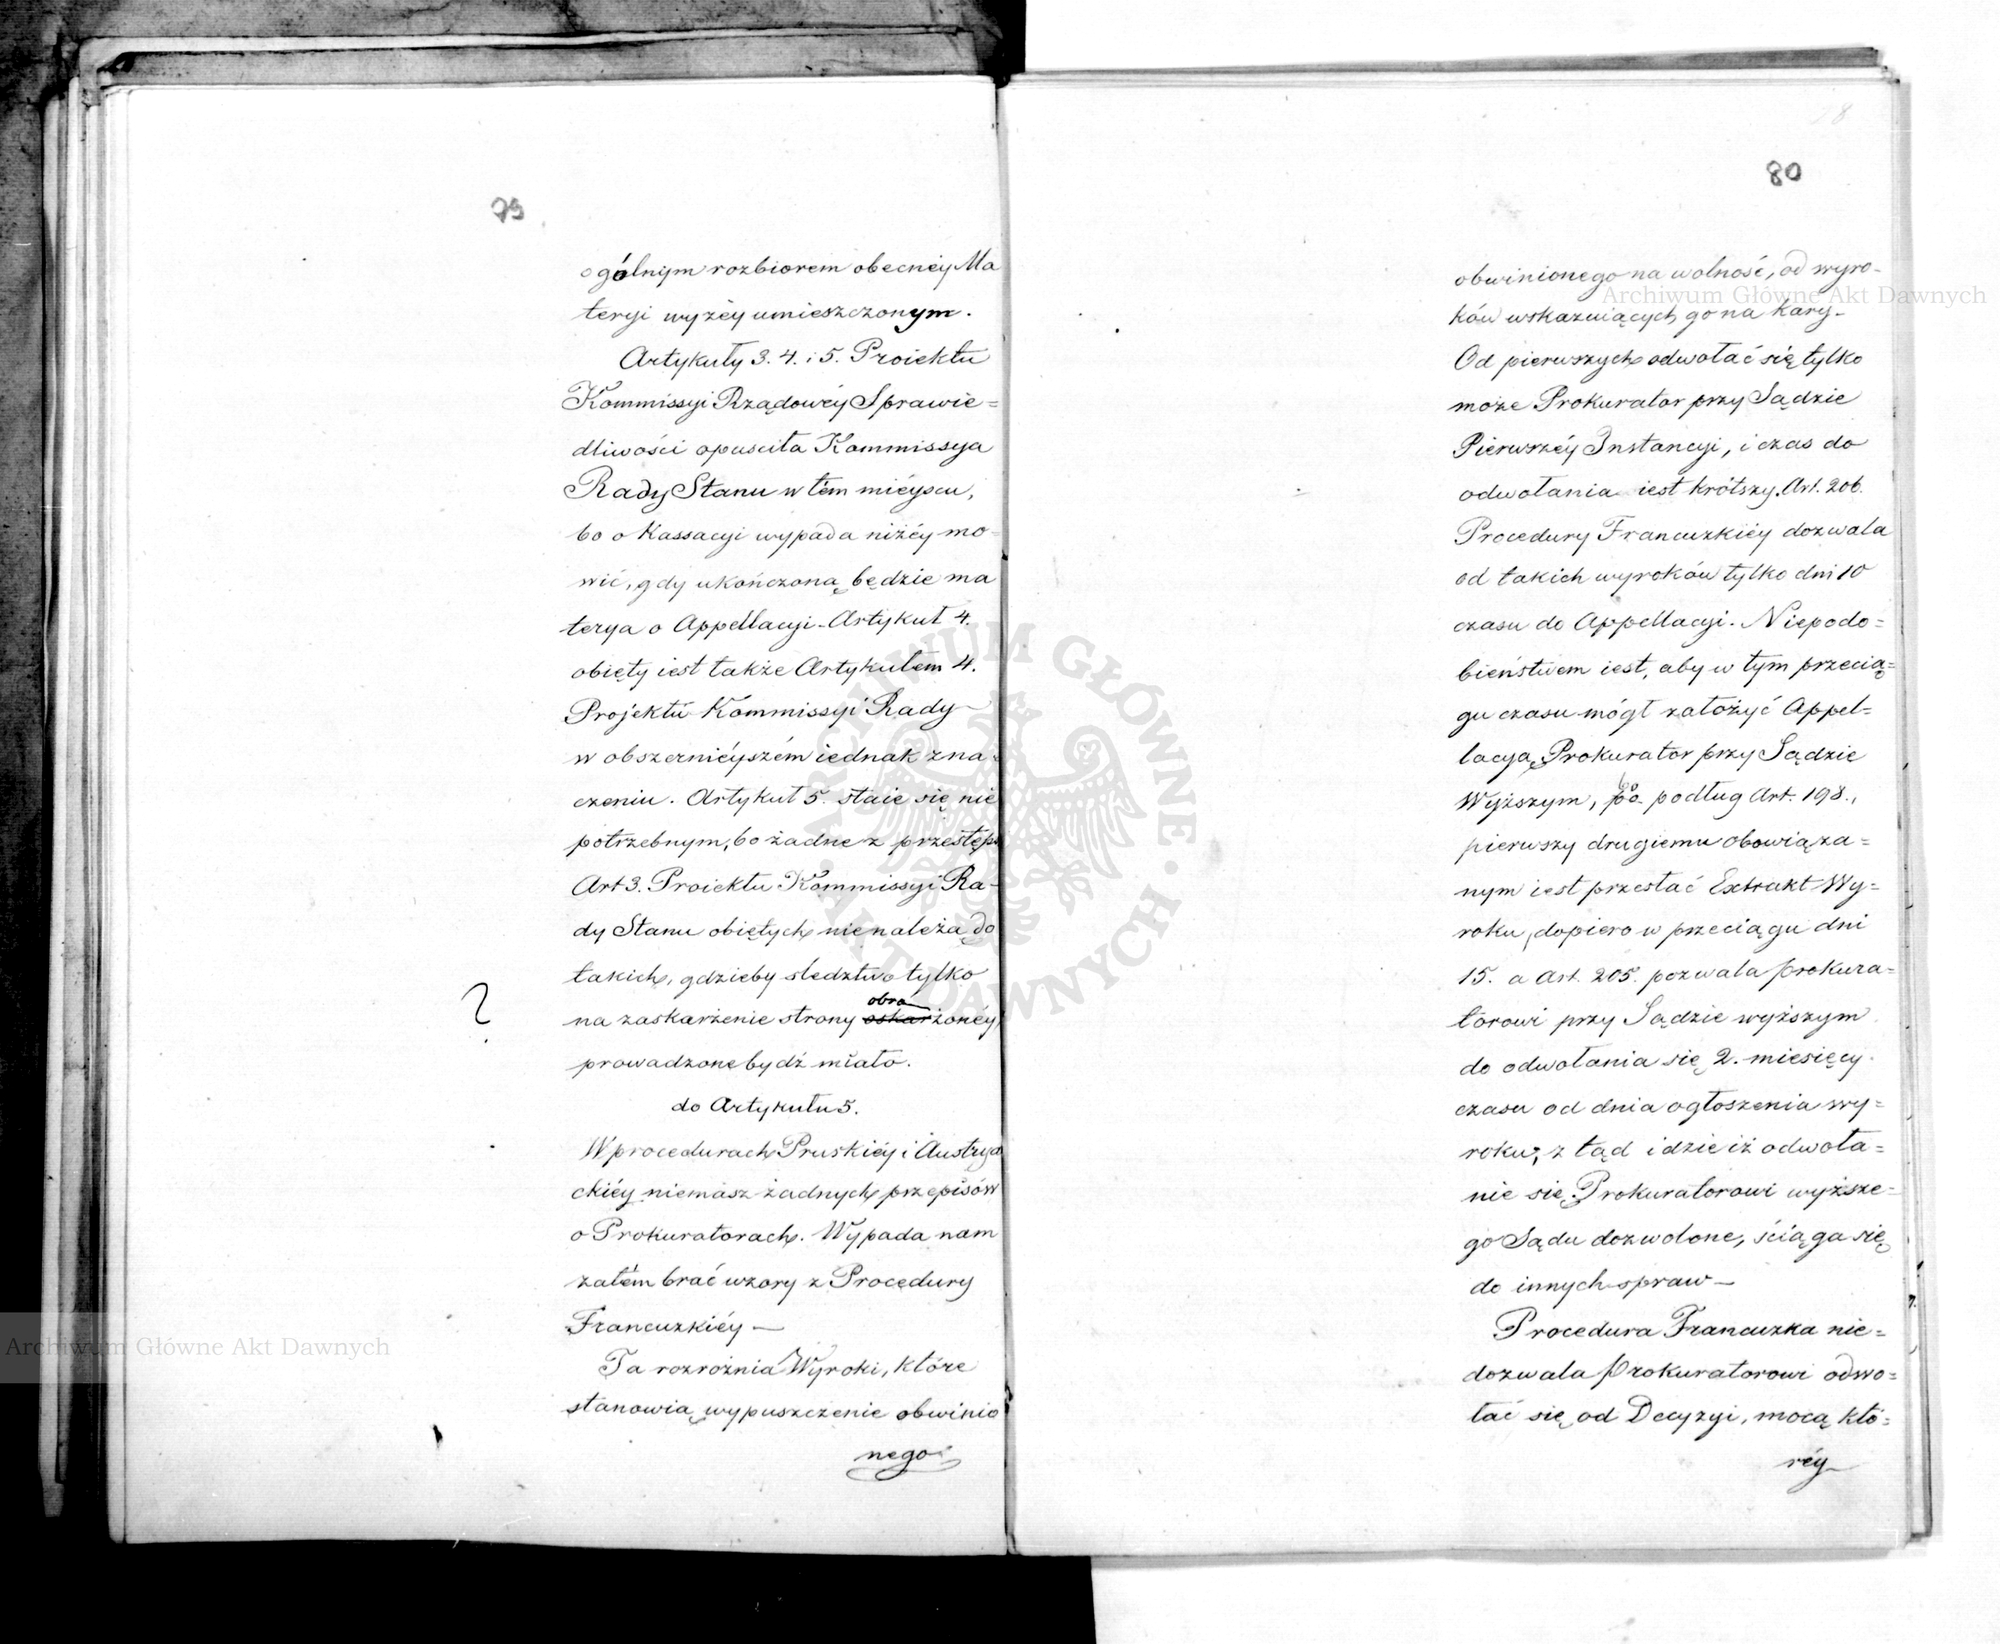 79
ogólnym rozbiorem obecnéy Ma
teryi wyżéy umieszczonym.
Artykuły 3. 4. i 5. Proiektu
Kommissyi Rządowéy Sprawie=
dliwości opuściła Kommissya
Rady Stanu w tém mieyscu,
bo o Kassacyi wypada niżéy mo-
wić, gdy ukończoną będzie ma
terya o Appellacyi. Artykuł 4.
obięty iest także Artykułem 4.
Projektu Kommissyi Rady
w obszernieyszém iednak zna=
czeniu. Artykuł 5. staie się nie
potrzebnym, bo żadne z przestęps
Art 3. Proiektu Kommissyi Ra-
dy Stanu obiętych nienależą do
takich, gdzieby sledztwo tylko
obra
? na zaskarżenie strony oskarżonéy
prowadzone bydź miało.
do Artykułu 5.
W procedurach Pruskiéy i Austrya
ckiéy niemasz żadnych przepisów
o Prokuratorach. Wypada nam
zatém brać wzory z Procedury
Francuzkiéy —
Ta rozrożnia Wyroki, które
stanowią wypuszczenie obwinio
nego
78
80
obwinionego na wolność, od wyro-
ków wskazuiących go na kary.
Od pierwszych odwołać się tylko
może Prokurator przy Sądzie
Pierwszéy Instancyi, i czas do
odwołania iest krótszy. Art. 206.
Procedury Francuzkiéy dozwala
od takich wyroków tylko dni 10
czasu do Appellacyi. Niepodo=
bieństwem iest, aby w tym przecią=
gu czasu mógł założyć Appel=
lacyą Prokurator przy Sądzie
Wyższym, bo podług Art. 198.,
pierwszy drugiemu obowiąza=
nym iest przesłać Extrakt Wy=
roku, dopiero w przeciągu dni
15. a Art. 205. pozwala prokura=
torowi przy Sądzie wyższym
do odwołania się 2. miesięcy
czasu od dnia ogłoszenia wy=
roku; z tąd idzie iż odwoła=
nie się Prokuratorowi wyższe=
go Sądu dozwolone, ściąga się
do innych spraw —
Procedura Francuzka nie=
dozwala Prokuratorowi odwo=
łać się od Decyzyi, mocą któ=
réy
Archiwum Główne Akt Dawnych
Archiwum Główne Akt Dawnych
ARCHIWUM GŁÓWNE · AKT DAWNYCH ·